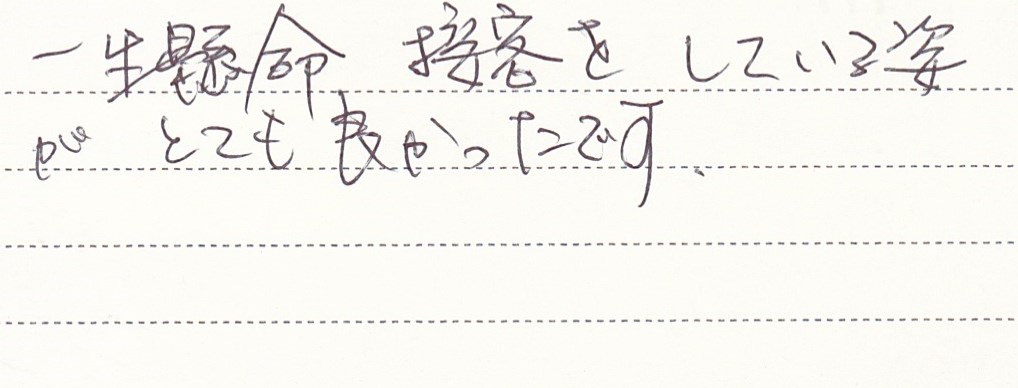 一生懸命 接客をしている姿
が とても良かったです、